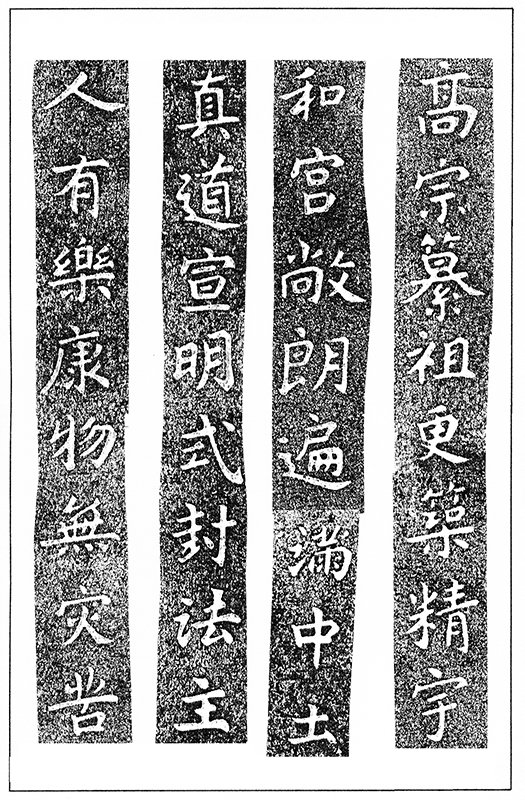 高宗纂祖更築精宇
和宮敞朗遍滿中土
真道宣明式封法主
人有樂康物無灾苦